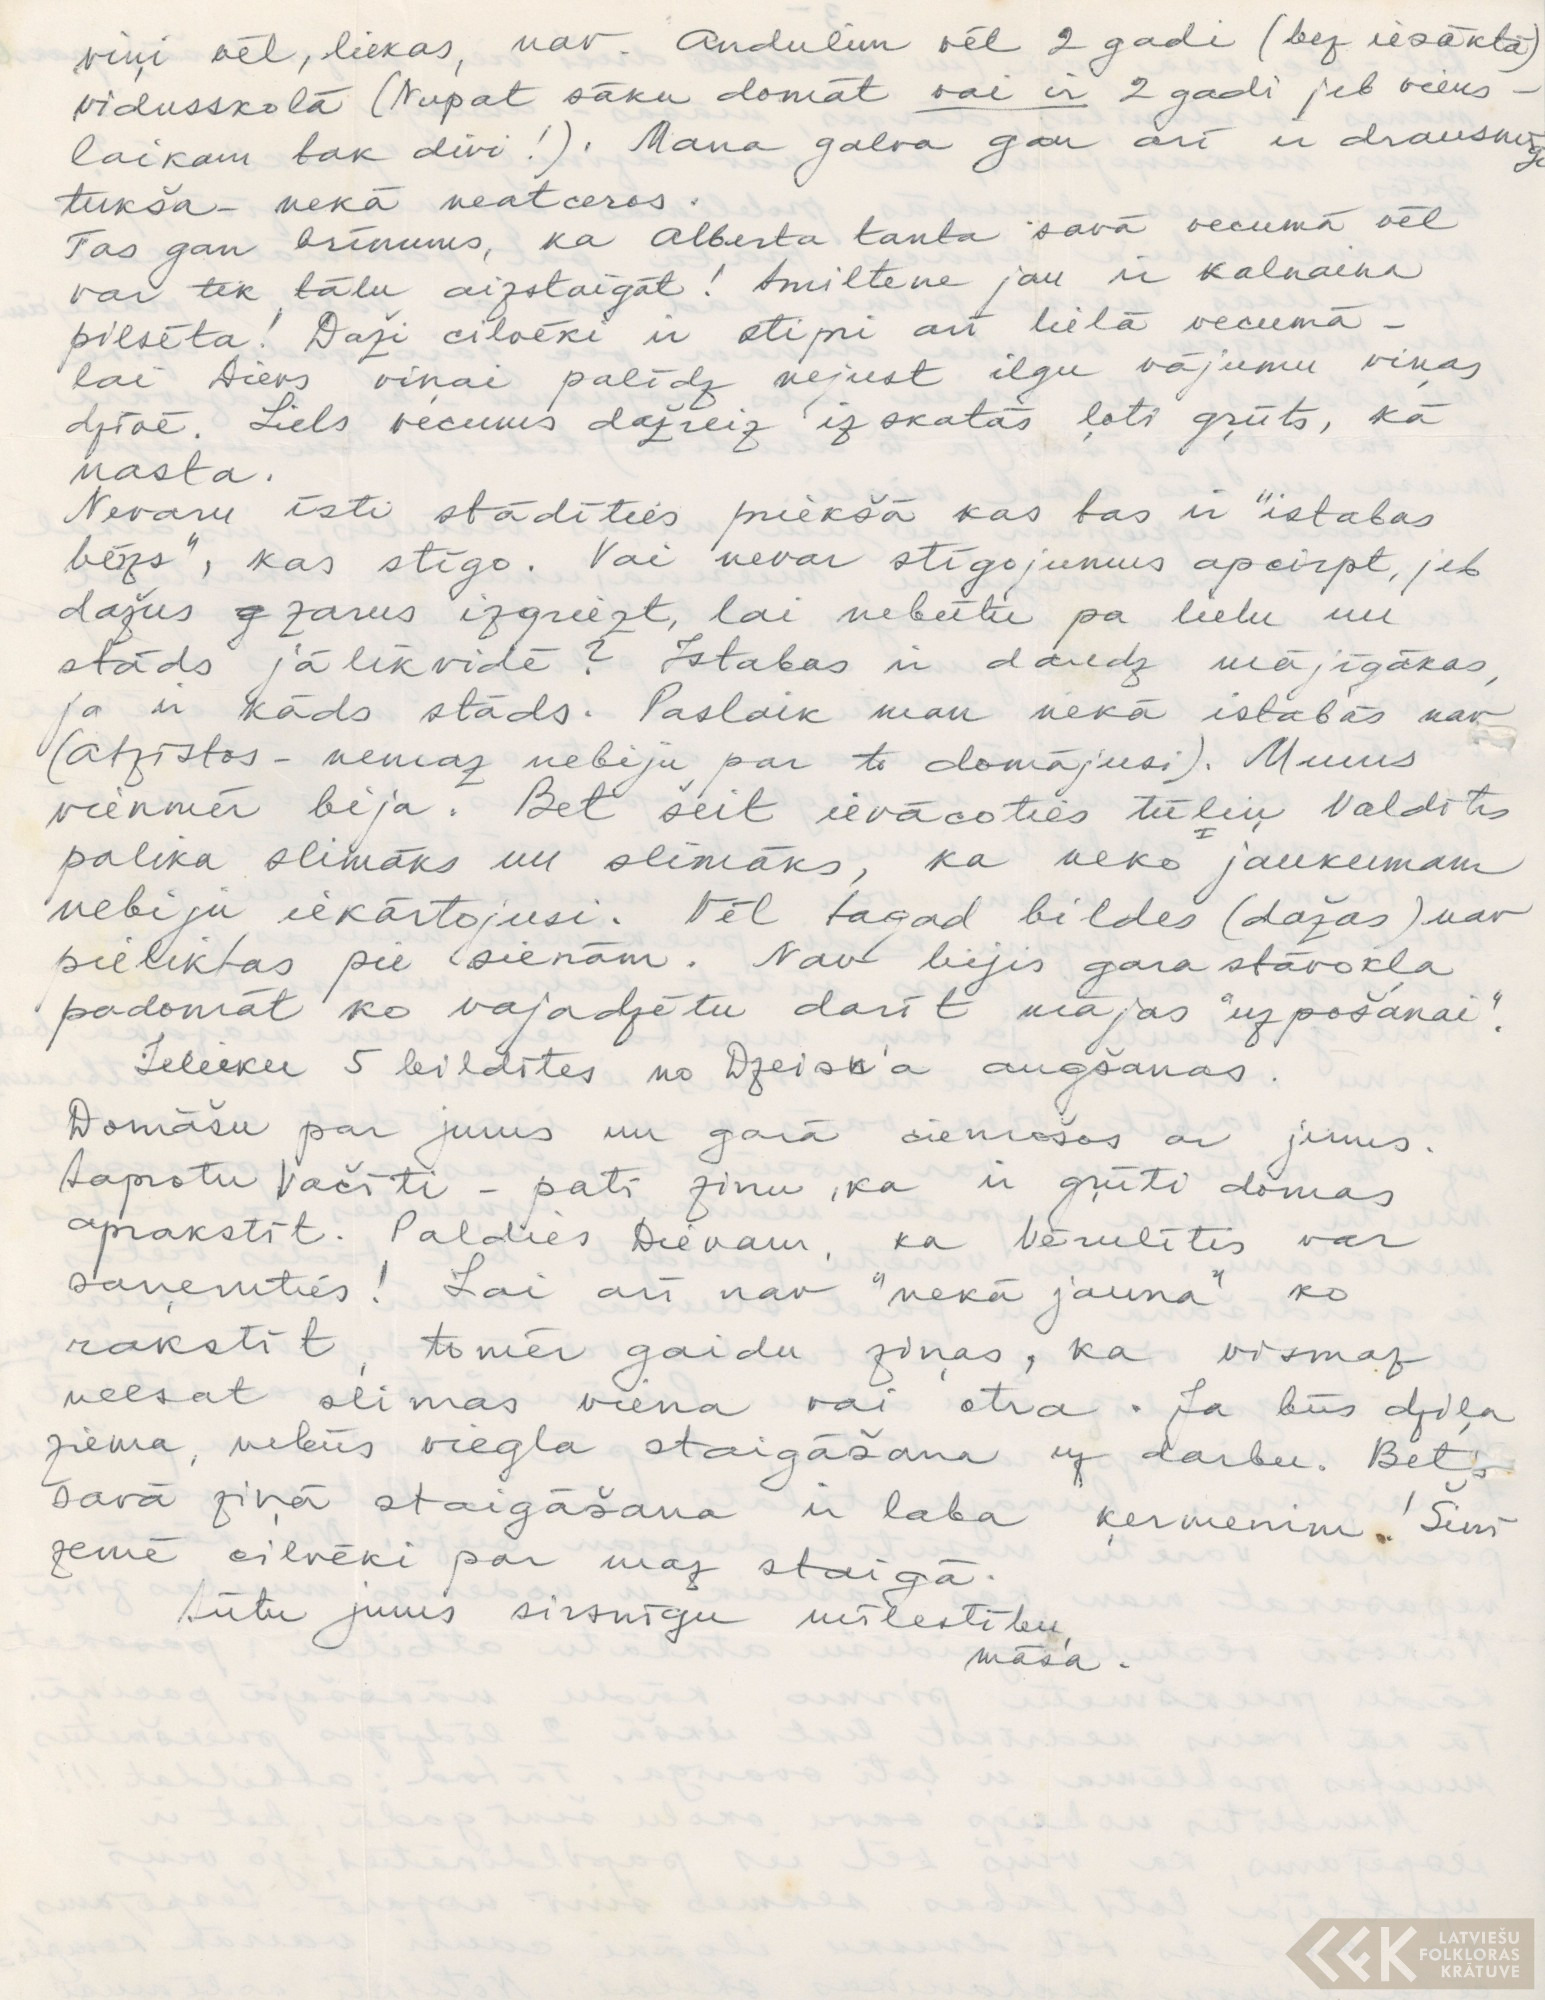 viņi vēl, liekas, nav. Andulim vēl 2 gadi (bez iesāktā)
vidusskolā (Nupat sāku domāt vai ir 2 gadi jeb viens –
laikam tak divi!). Mana galva gan arī ir drausmīgi
tukša – nekā neatceros.
Tas gan brīnums, ka Alberta tanta savā vecumā vēl
var tik tālu aizstaigāt! Smiltene jau ir kalnaina
pilsēta! Daži cilvēki ir stipri arī lielā vecumā –
lai Dievs viņai palīdz nejust ilgu vājumu viņas
dzīvē. Liels vecums dažreiz izskatās ļoti grūts, kā
nasta.
Nevaru īsti stādīties priekšā kas tas ir "istabas
bēzs", kas stīgo. Vai nevar stīgojumus apcirpt, jeb
dažus zarus izgriezt, lai nebūtu pa lielu un
stāds jālikvidē? Istabas ir daudz mājīgākas,
ja ir kāds stāds. Paslaik man nekā istabās nav
(atzīstos – nemaz nebiju par to domājusi). Mums
vienmēr bija. Bet šeit ievācoties tūliņ Valdītis
palika slimāks un slimāks, ka neko jaukumam
nebiju iekārtojusi. Vēl tagad bildes (dažas) nav
pieliktas pie sienām. Nav bijis gara stāvokļa
padomāt ko vajadzētu darīt mājas "uzpošanai".
Ielieku 5 bildītes no Dzeisk'a augšanas.
Domāšu par jums un garā ciemošos ar jums.
Saprotu Vačīti – pati zinu, ka ir grūti domas
aprakstīt. Paldies Dievam, ka Vērulītis var
saņemties! Lai arī nav "nekā jauna" ko
rakstīt, tomēr gaidu ziņas, ka vismaz
neesat slimas viena vai otra. Ja būs dziļa
ziema, nebūs viegla staigāšana uz darbu. Bet
savā ziņā staigāšana ir laba ķermenim! Šinī
zemē cilvēki par maz staigā.
Sūtu jums sirsnīgu mīlestību,
māsa.
LATVIEŠU
FOLKLORAS
KRĀTUVE